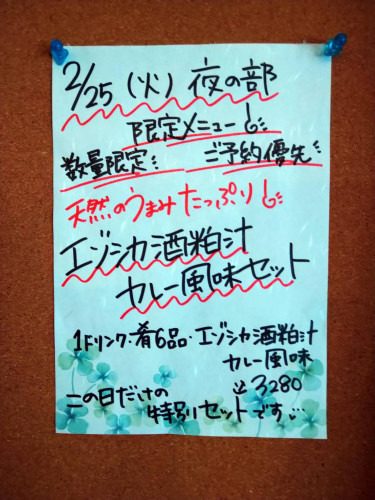 2/25 (火) 夜の部
限定メニュー
数量限定 ご予約優先
天然のうまみたっぷり
エゾシカ酒粕汁
カレー風味セット
1ドリンク・肴6品・エゾシカ酒粕汁
カレー風味
¥3280
この日だけの
特別セットです…